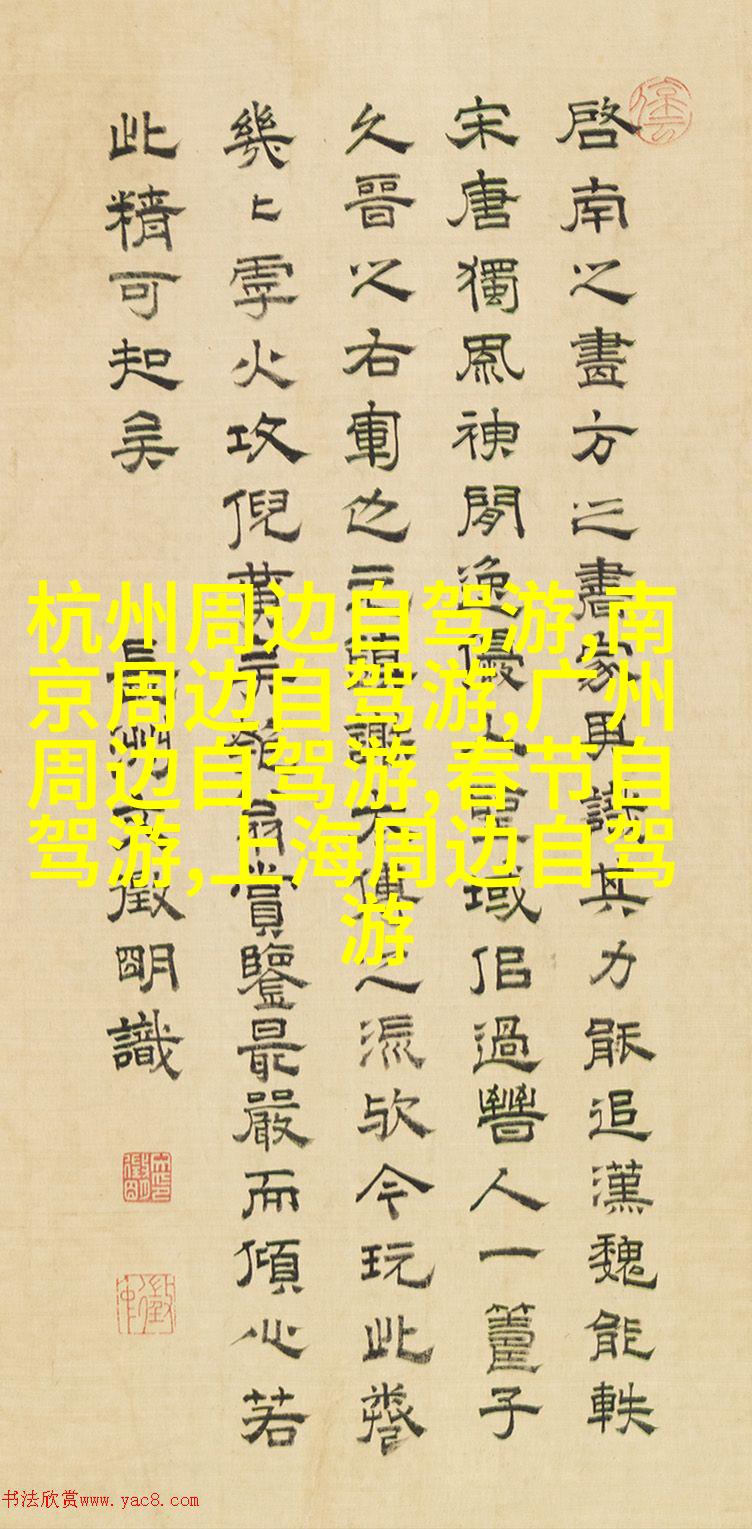 啓南之畫方之書家議其力能追漢魏能軼
宋唐獨風神閒逸優入聖域但過晉人一籌子
久晉之右軍也元之派歟今玩此卷
幾〻乎火攻倪黄賞鑒最嚴而傾心若
此精可知矣
長洲文徵明識
杭州周边自驾游,南
京周边自驾游,广州
周边自驾游,春节自
驾游,上海周边自驾
游
书法欣赏www.yac8.com